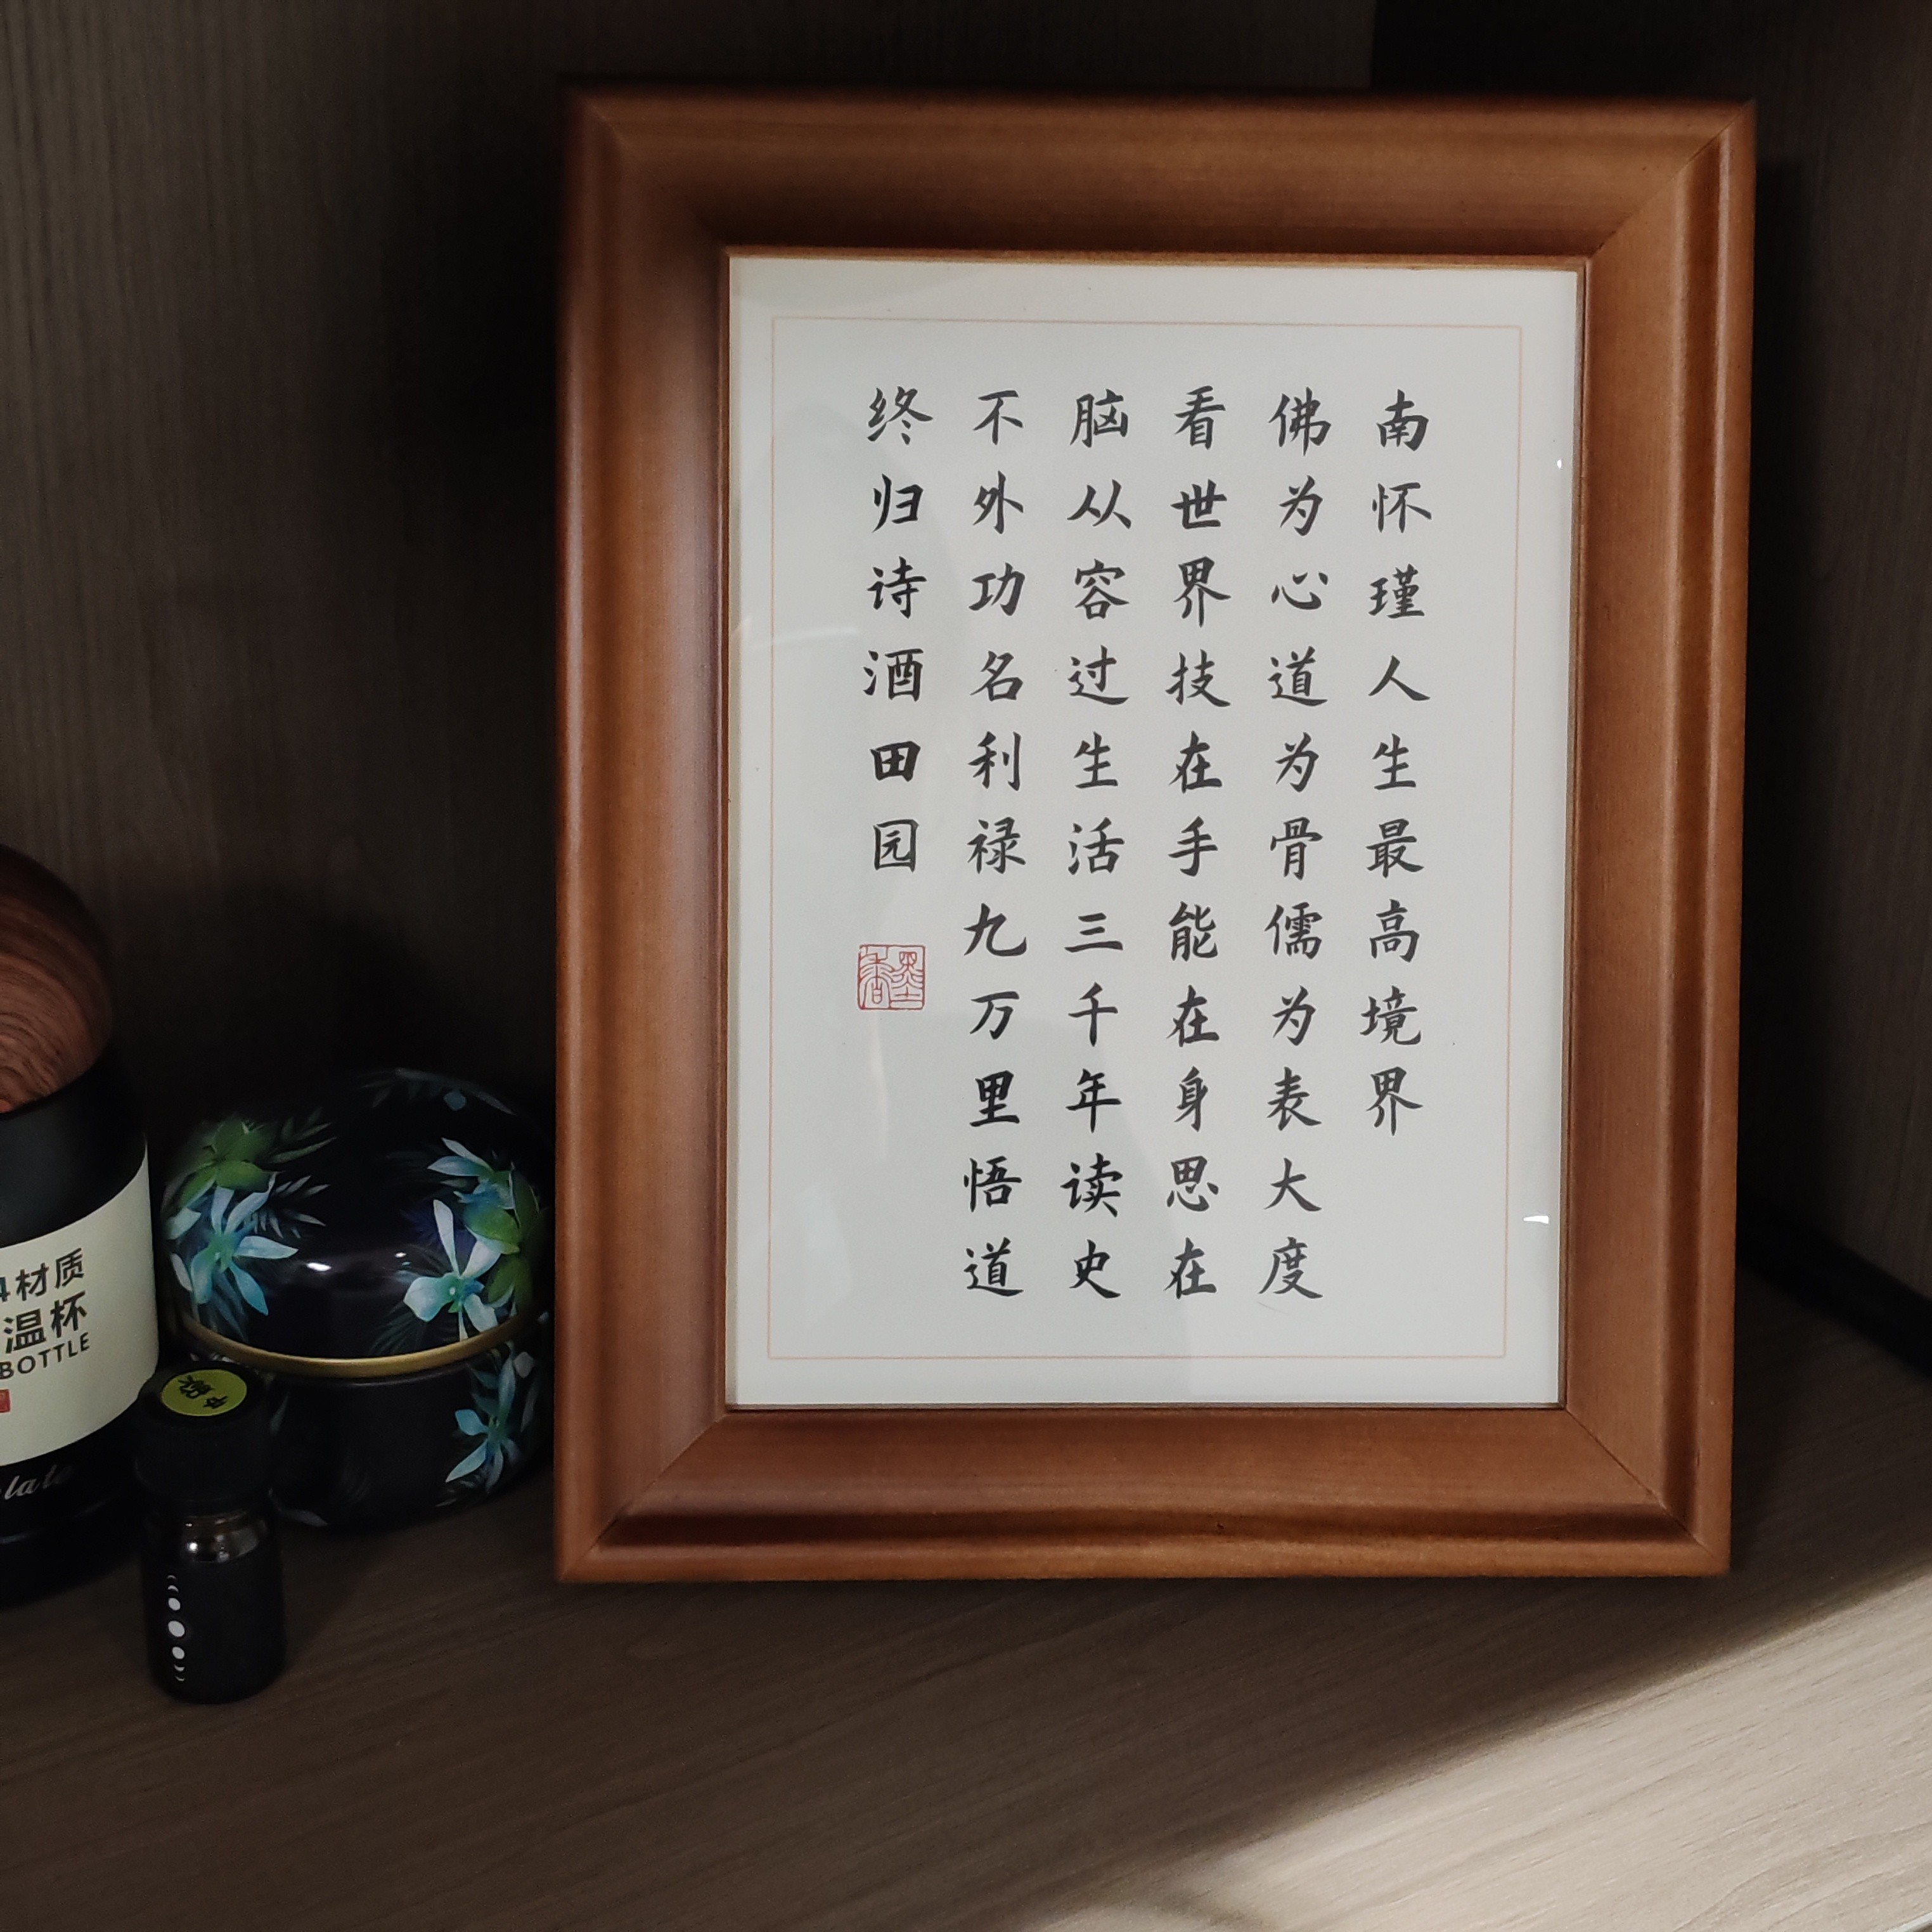 南怀瑾人生最高境界
佛为心道为骨儒为表大度
看世界技在手能在身思在
脑从容过生活三千年读史
不外功名利禄九万里悟道
终归诗酒田园
墨香
4材质
温杯
BOTTLE